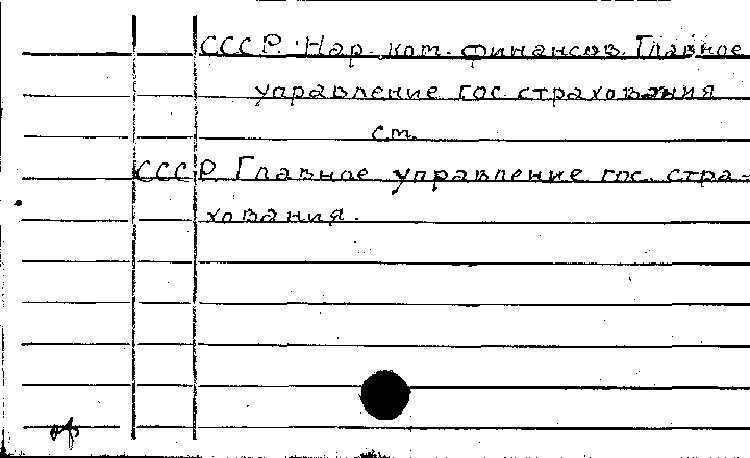 СССР. Нар. ком. финансов. Главное
управление гос. страхования
см.
СССР. Главное управление гос. стра-
хования.